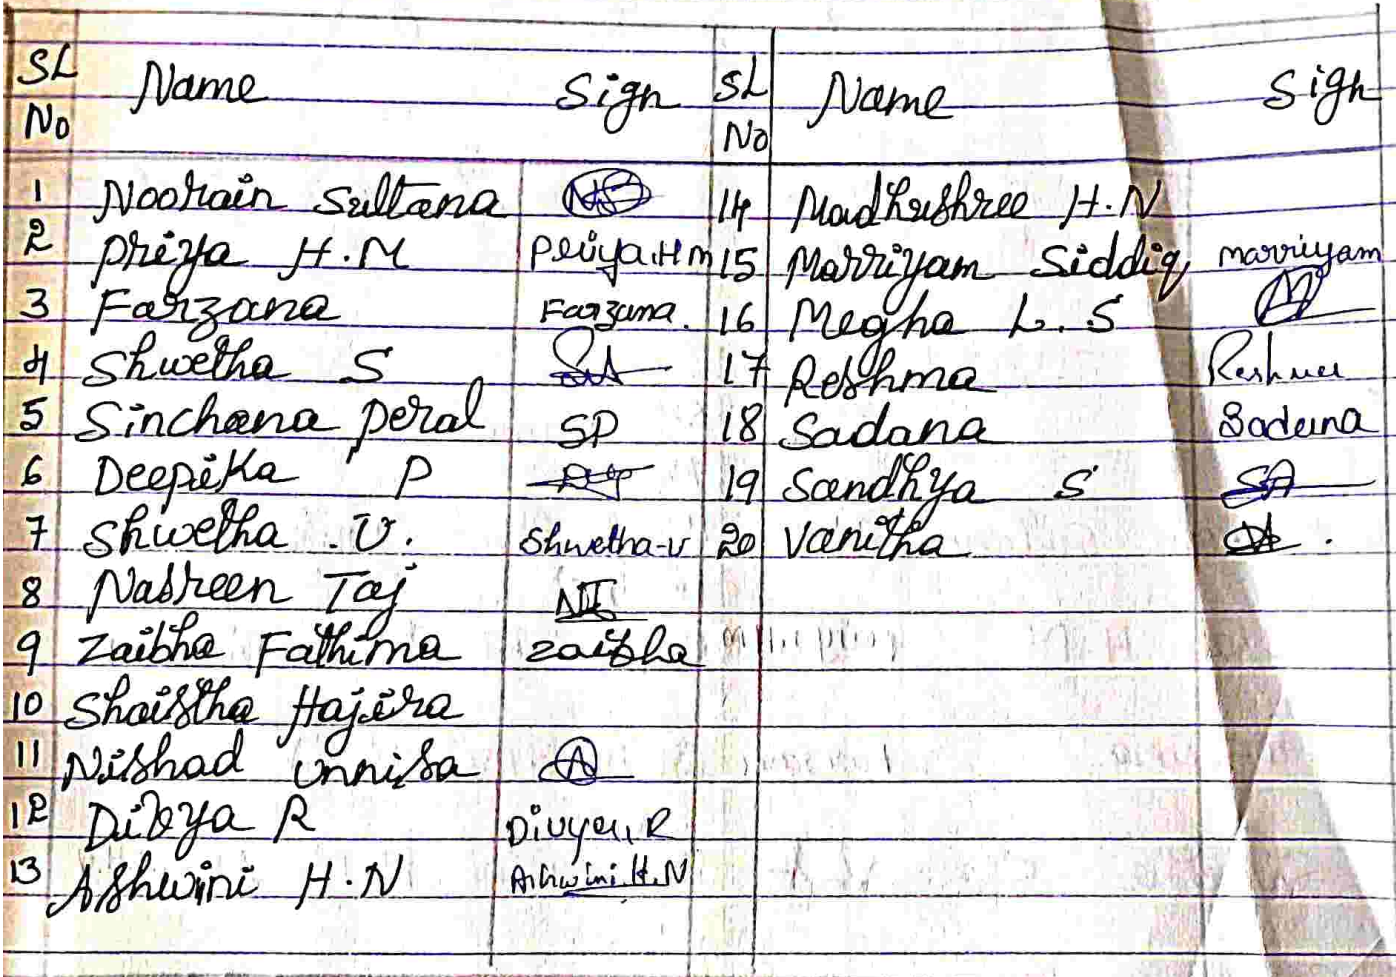 SL No Name Sign SL No Name Sign
1 Noorain Sultana NS 14 Madhushree H.N
2 Priya H.M Priya.H m 15 Marriyam Siddiq marriyam
3 Farzana Farzana. 16 Megha L.S
4 Shwetha S 17 Reshma Reshma
5 Sinchana Peral SP 18 Sadana Sadana
6 Deepika P 19 Sandhya S
7 Shwetha .V. Shwetha-v 20 Vanitha
8 Nasreen Taj NT
9 Zaibha Fathima Zaibha
10 Shaistha Hajira
11 Nishad unnisa
12 Divya R Divya.R
13 Ashwini H.N Ashwini.H.N